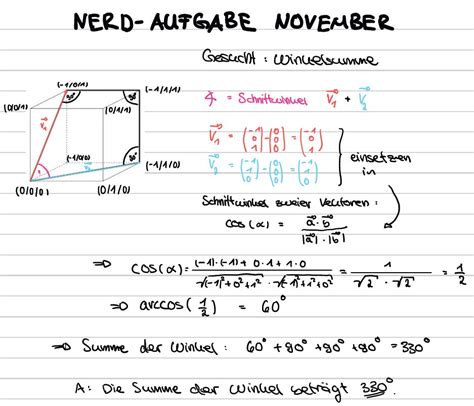 NERD-AUFGABE NOVEMBER
Gesucht : Winkelsumme
∢ = Schnittwinkel V₁ + V₂
(-1/0/1)
(-1/1/1)
(0/0/1)
(0/1/1)
90°
90°
90°
(-1/0/0)
(-1/1/0)
(0/0/0)
(0/1/0)
V₁ = (-1 0 1) - (0 0 0) = (-1 0 1)
V₂ = (-1 1 0) - (0 0 0) = (-1 1 0)
einsetzen in
Schnittwinkel zweier Vektoren :
cos(α) = a · b / |a| · |b|
⇒ cos(α) = (-1)·(-1) + 0·1 + 1·0 / √(-1)²+0²+1² · √(-1)²+1²+0² = 1 / √2 · √2 = 1/2
⇒ arccos(1/2) = 60°
⇒ Summe der Winkel : 60° + 90° + 90° + 90° = 330°
A: Die Summe der Winkel beträgt 330°.